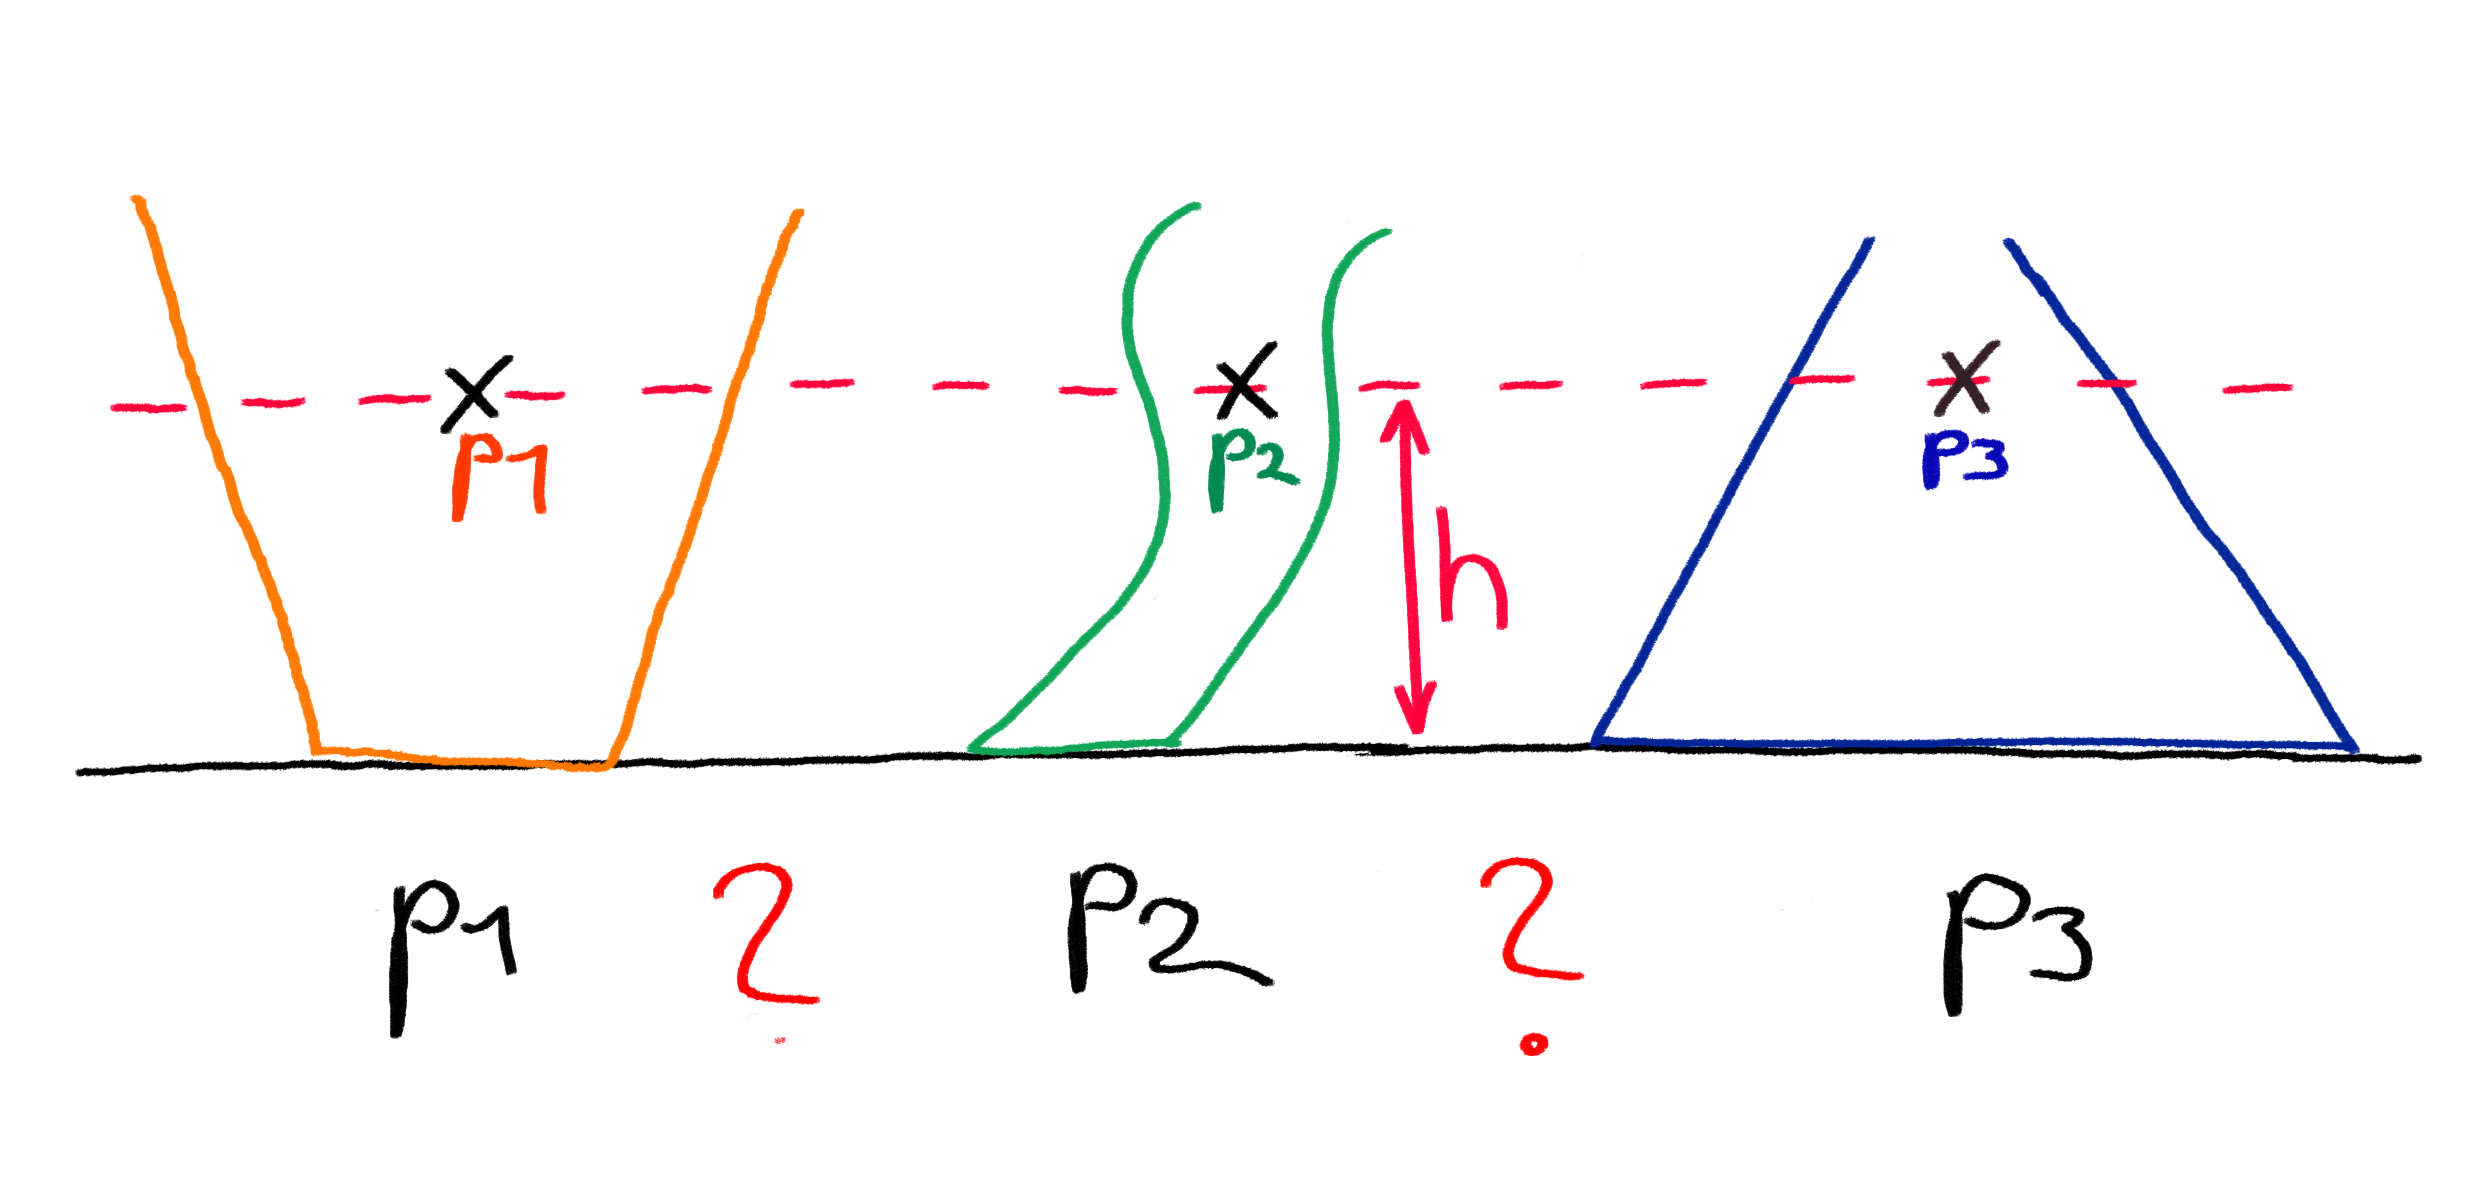 p1 p2 p3
h
p1 ? p2 ? p3